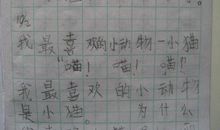 我最喜欢的小动物—小猫
“喵！喵！喵！
我最喜欢的小动物
是小猫。为什么